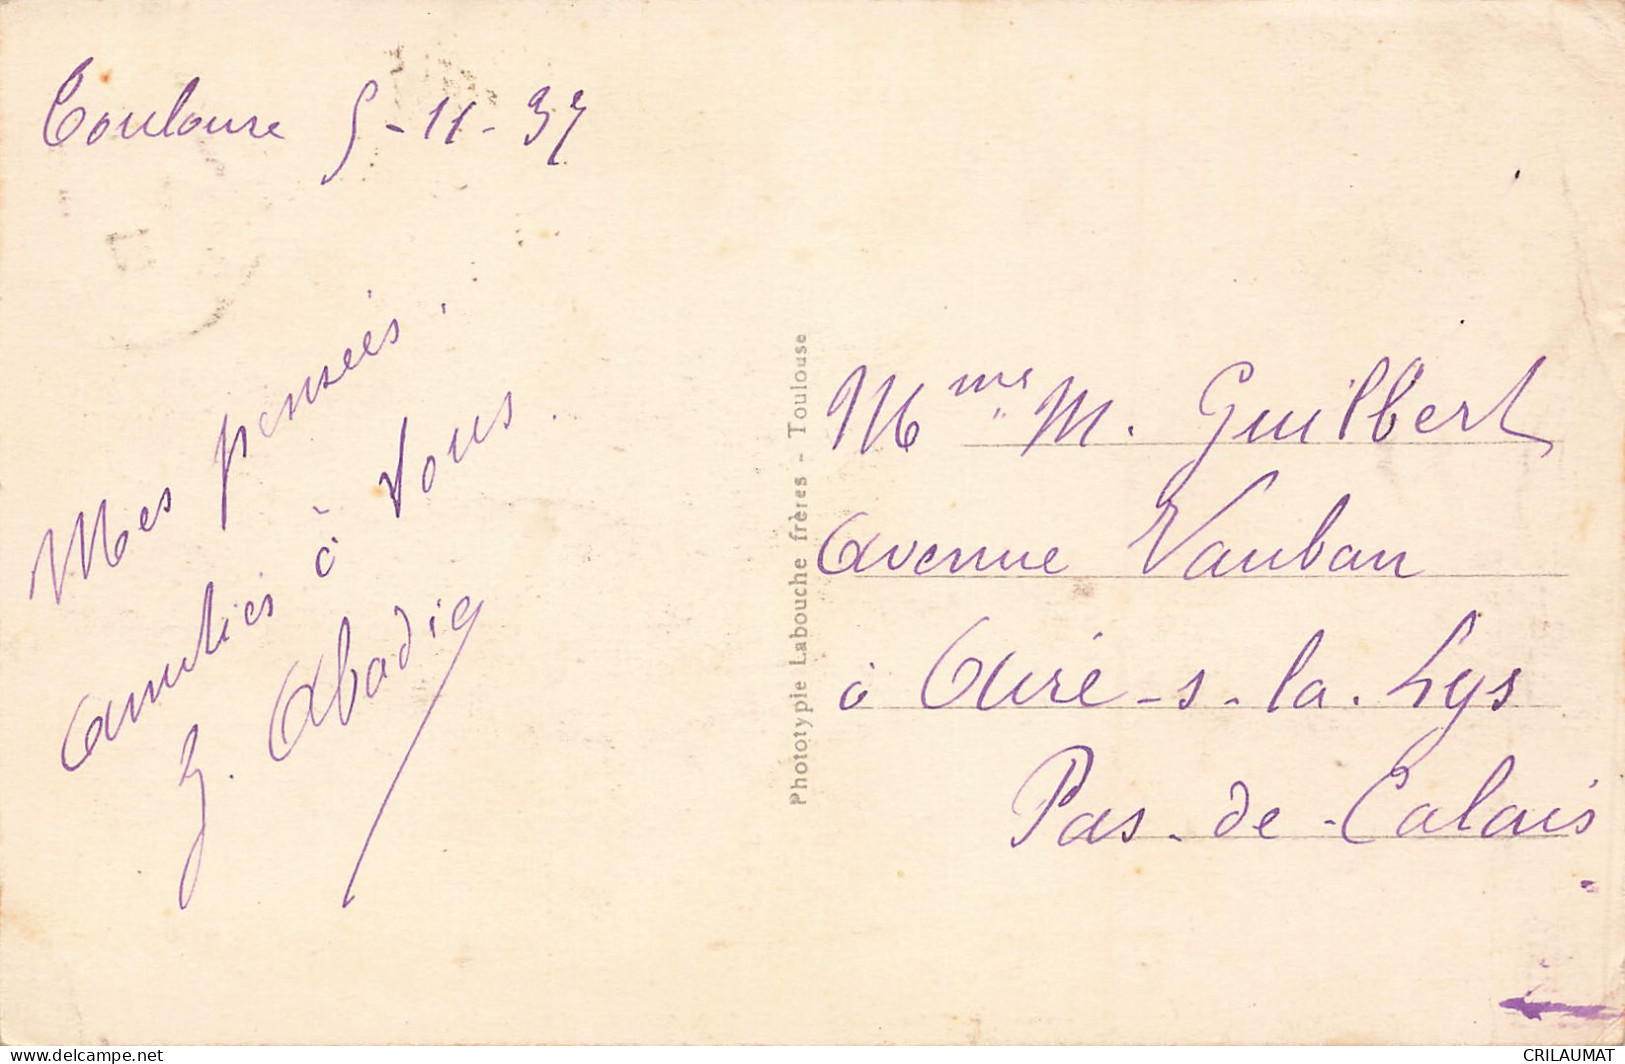 Toulouse 5-11-37
Mes pensées
amitiés à Vous.
Abadie
Phototypie Labouche frères - Toulouse
Mme M. Guilbert
Avenue Vauban
à Aire-s-la-Lys
Pas-de-Calais
www.delcampe.net
CRILAUMAT